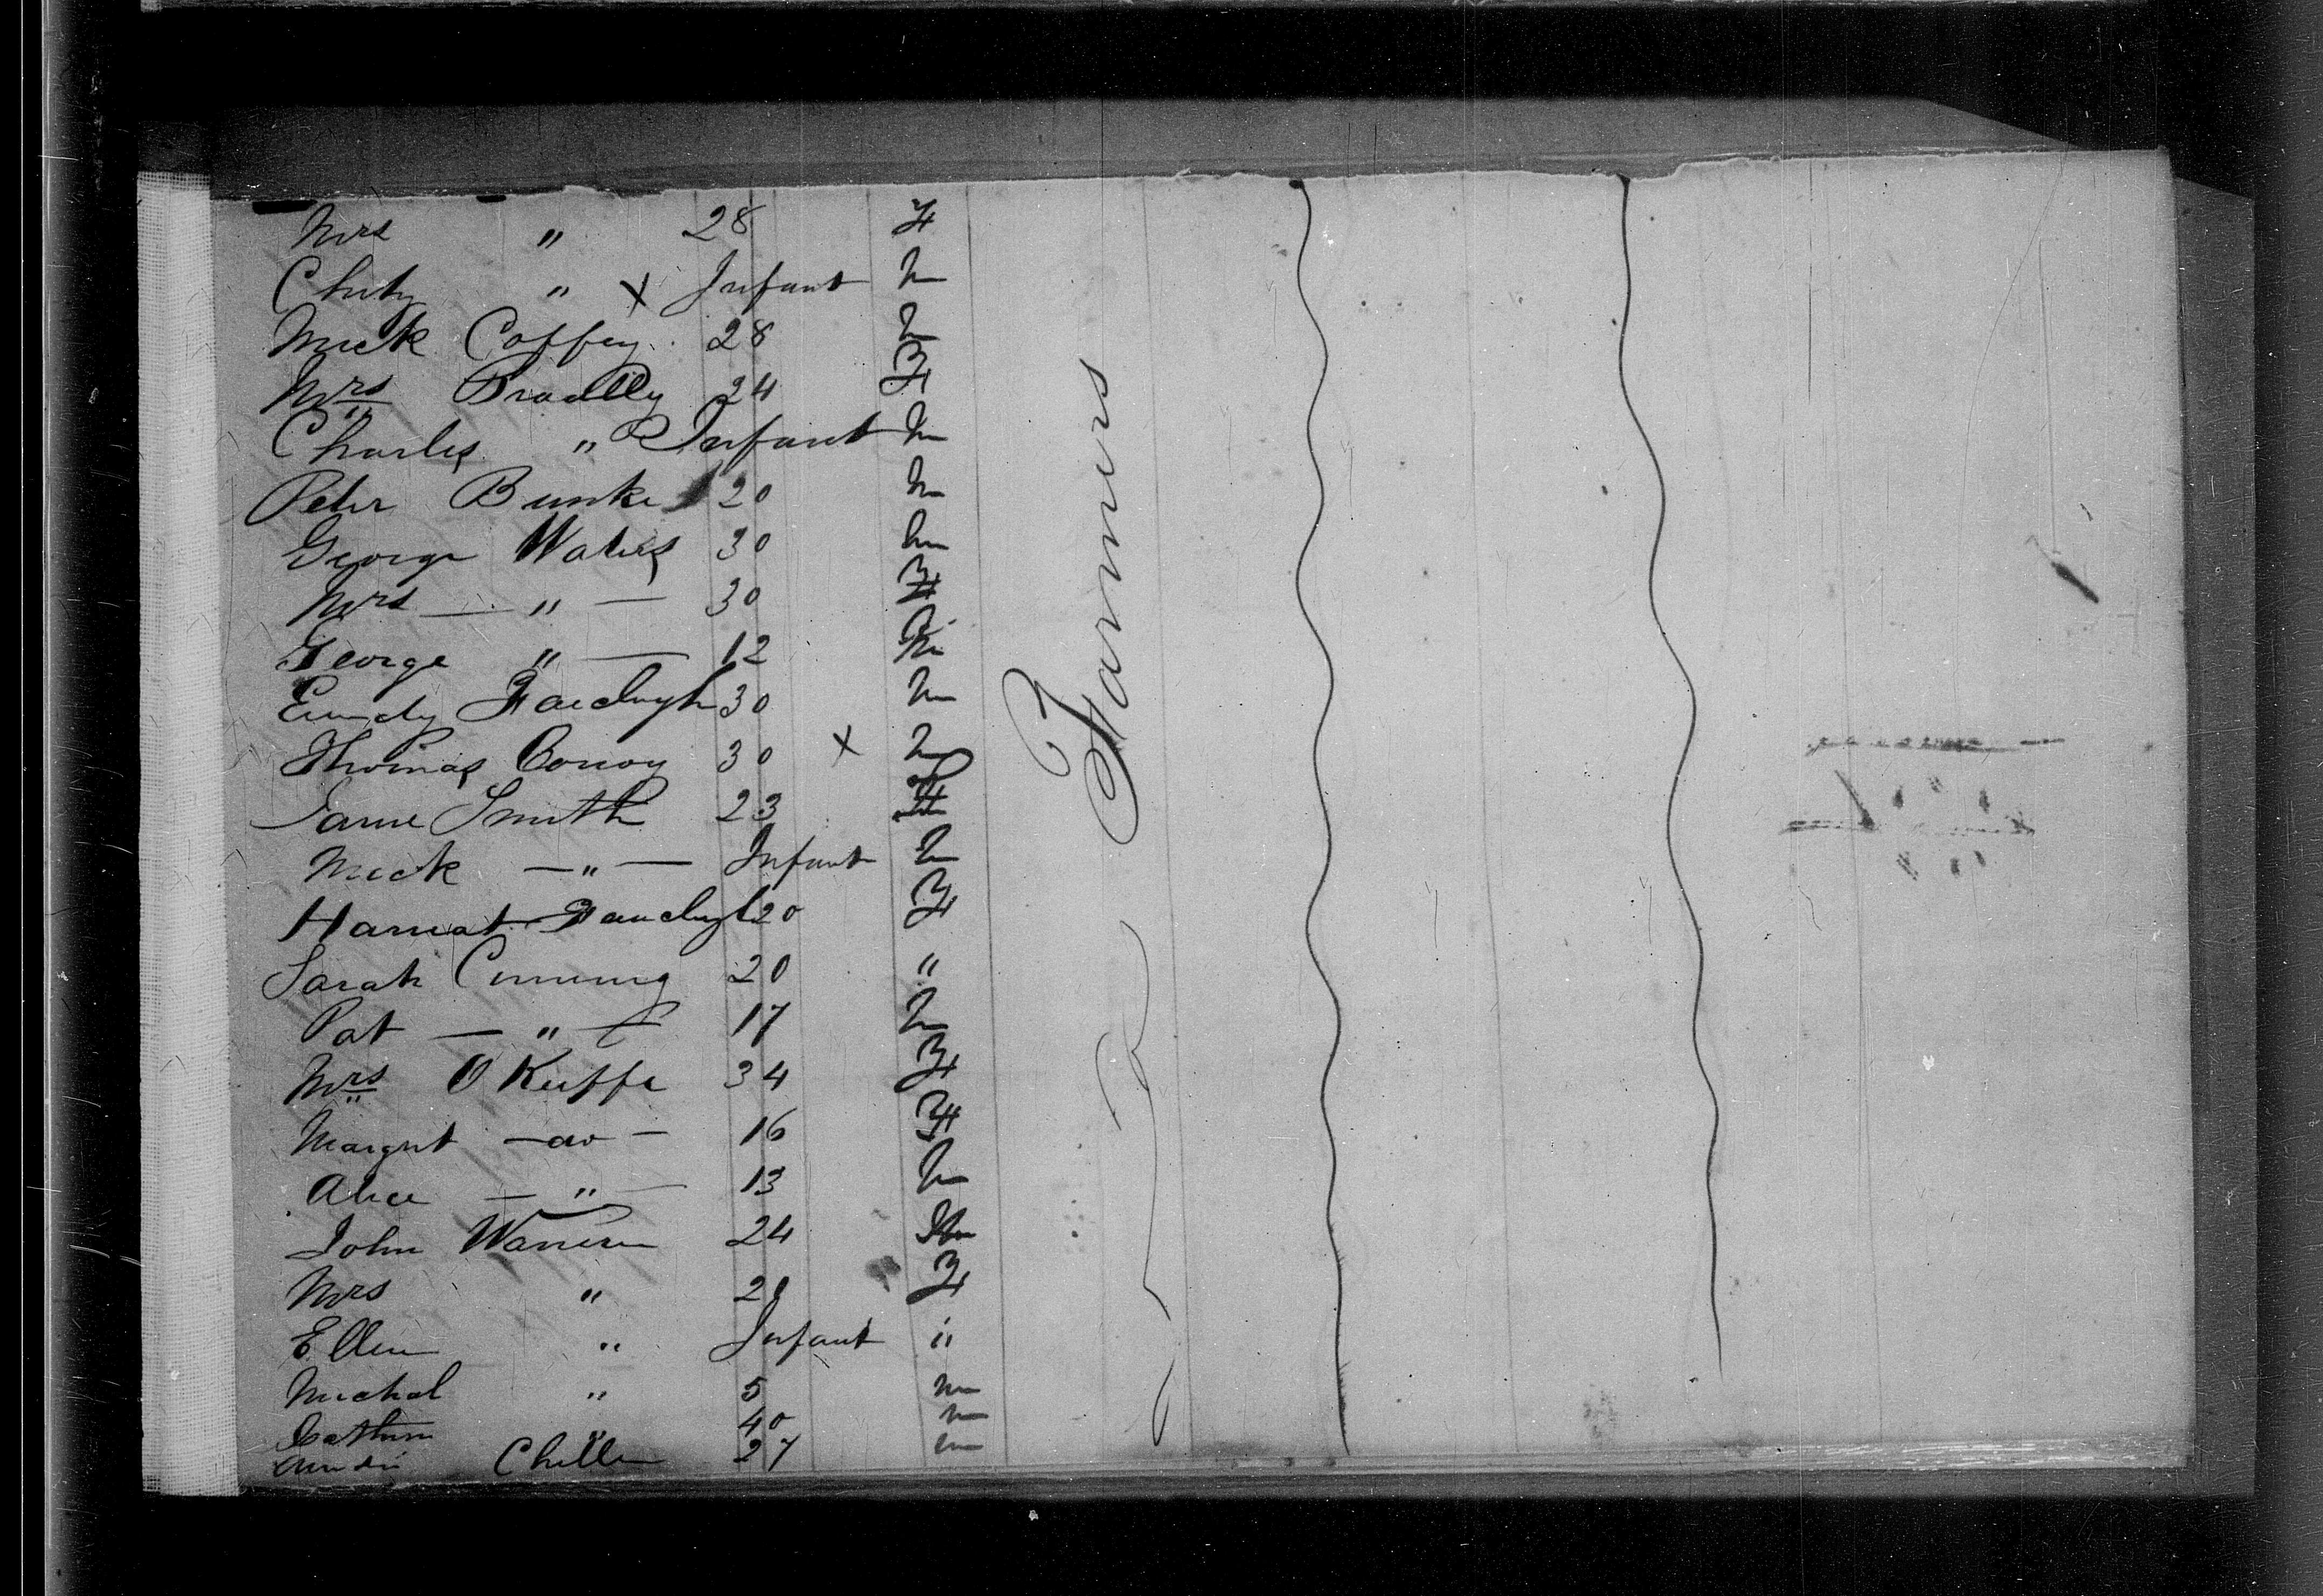 Mrs " 28 F
" X Infant m
Mick Coffey 28 m
Mrs Bradlly 24 F
Charles " Infant m
Peter Bunke 20 m
George Waters 30 m
Mrs — " — 30 F
George " — 12 m
30 m
Thomas Conroy 30 X m
Jane Smith 23 F
Mick — " — Infant m
Harriat 20 F
Sarah 20 "
Pat — " — 17 m
Mrs O Keiffe 34 F
Margrit — do — 16 F
Alice — " — 13 m
John Warren 24 m
Mrs " 21 F
Ellen " Infant "
Michal " 5 m
" 40 m
27 m
Farmers